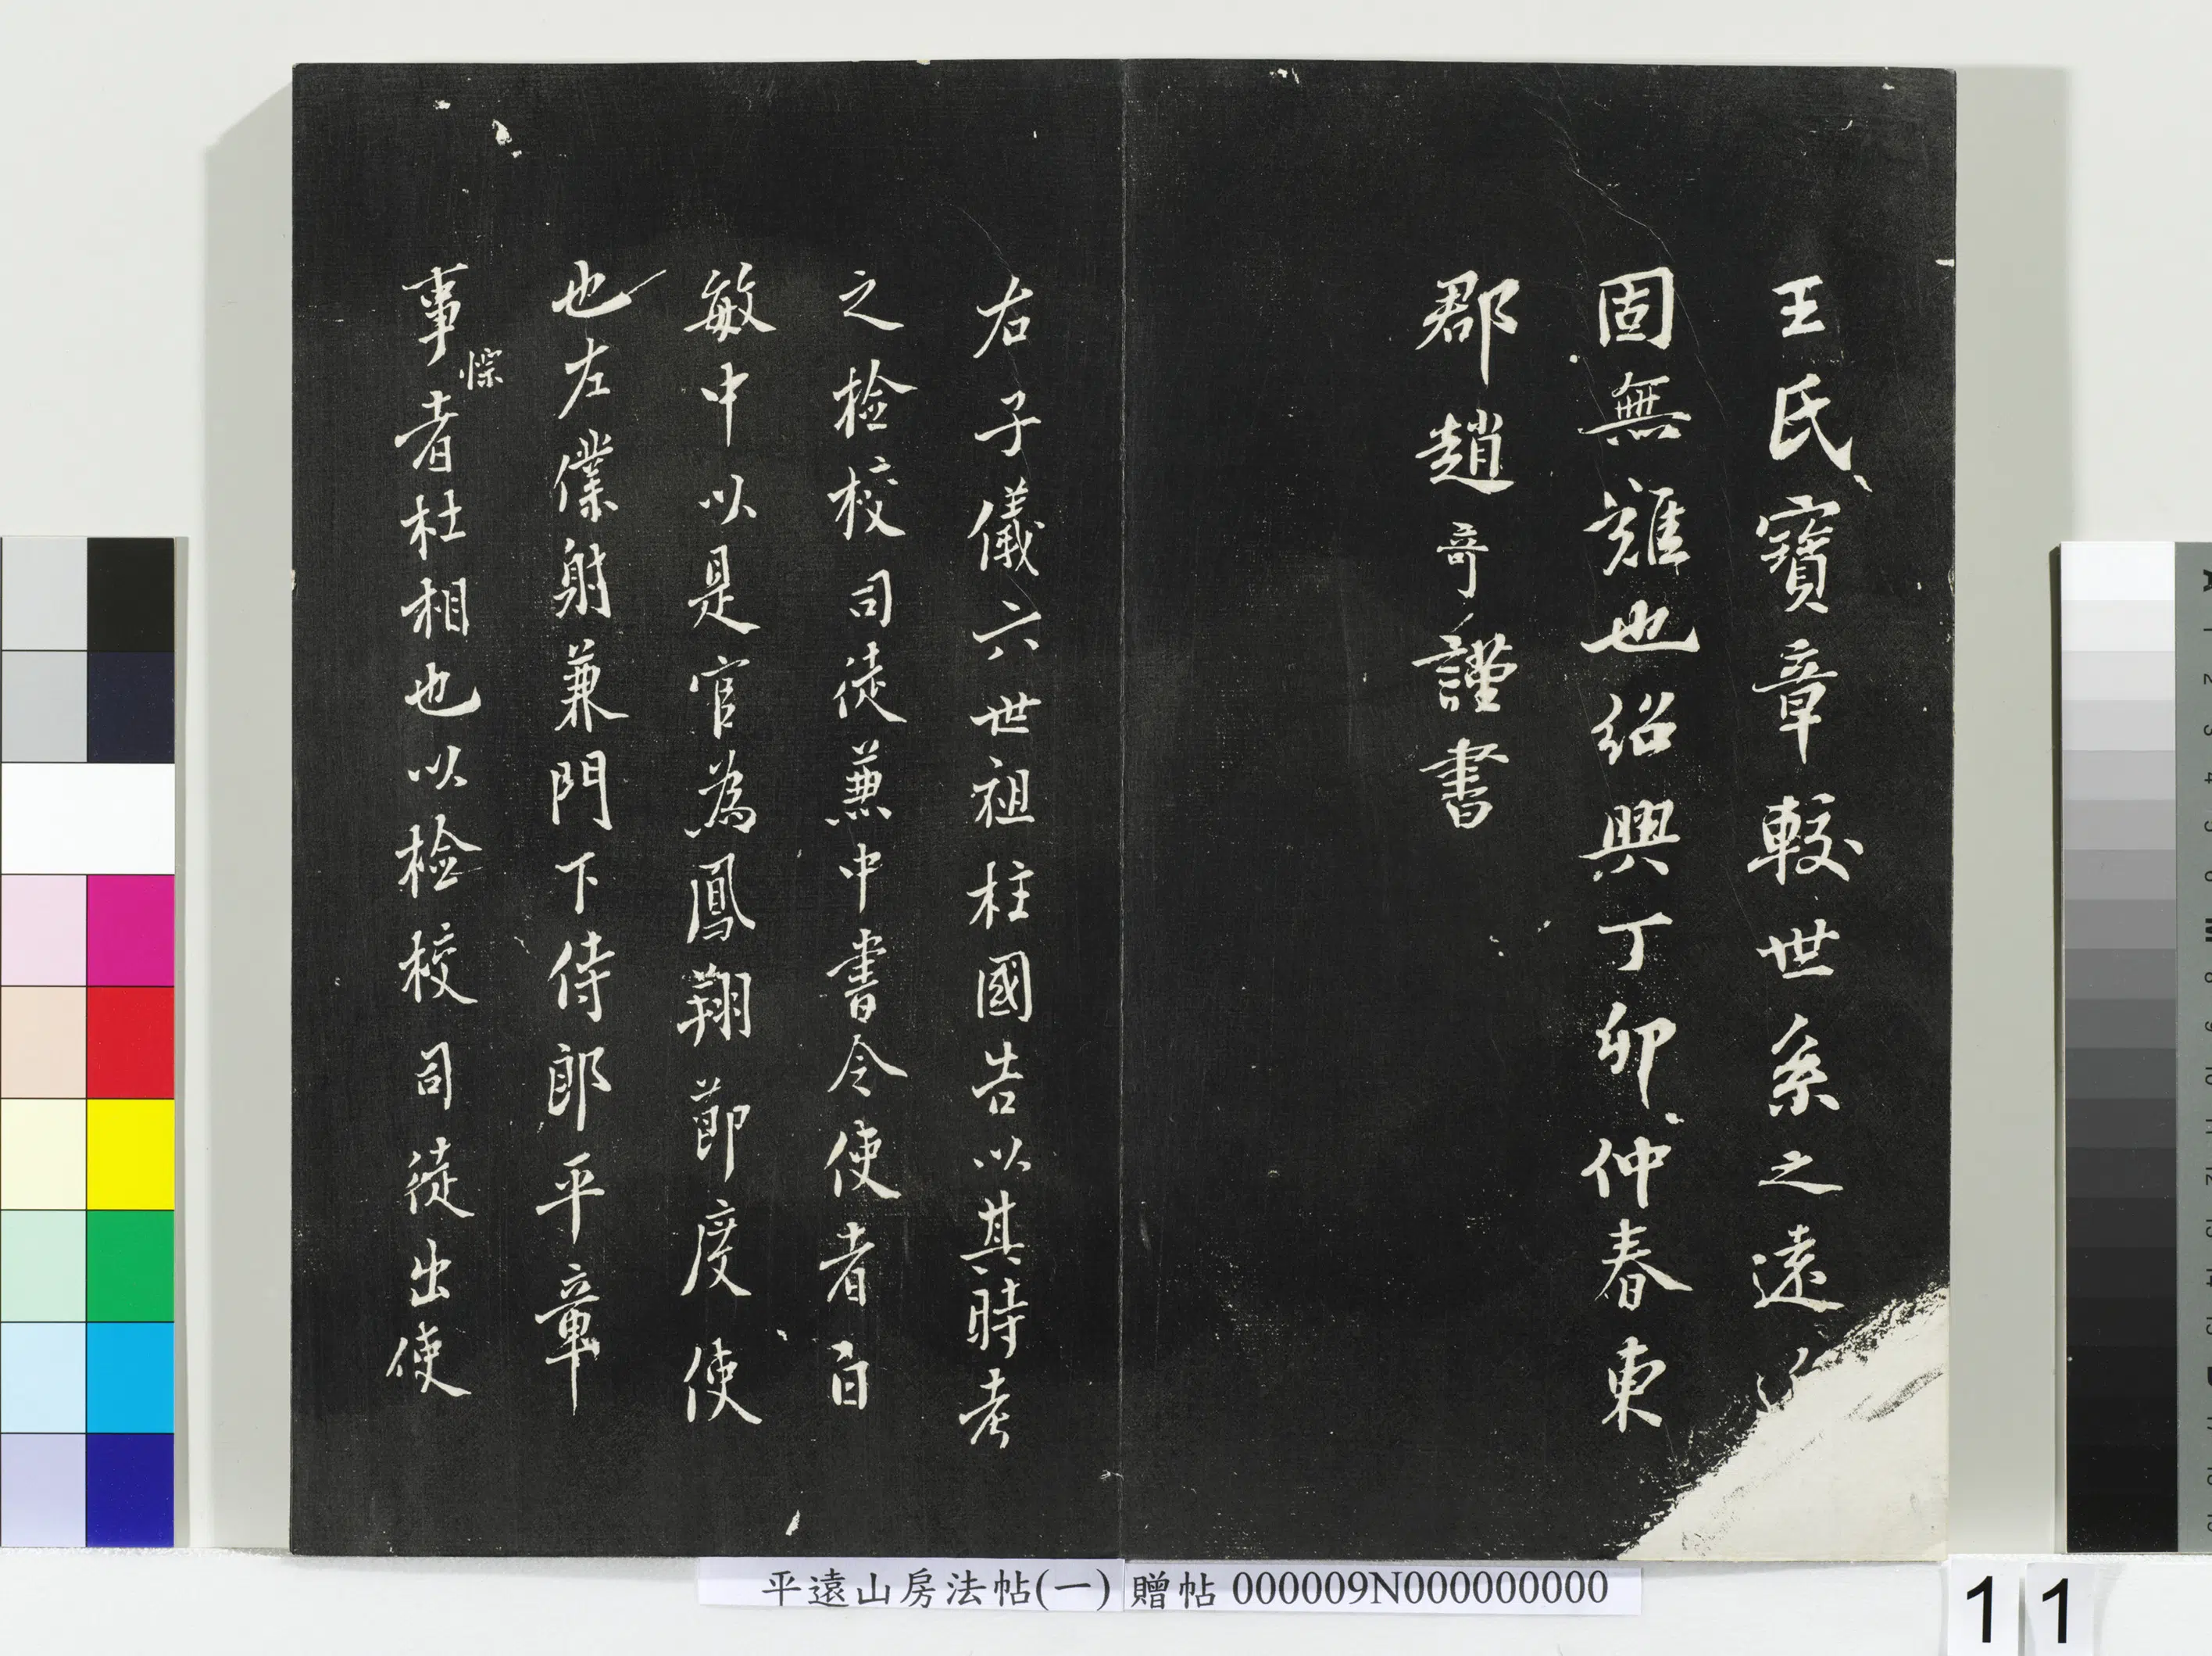 王氏寶章較世系之遠
固無難也紹興丁卯仲春東
郡趙奇謹書
右子儀六世祖柱國告以其時考
之檢校司徒兼中書令使者白
敏中以是官為鳳翔節度使
也左僕射兼門下侍郎平章
事者杜相也以檢校司徒出使
悰
平遠山房法帖(一) 贈帖 000009N000000000
11